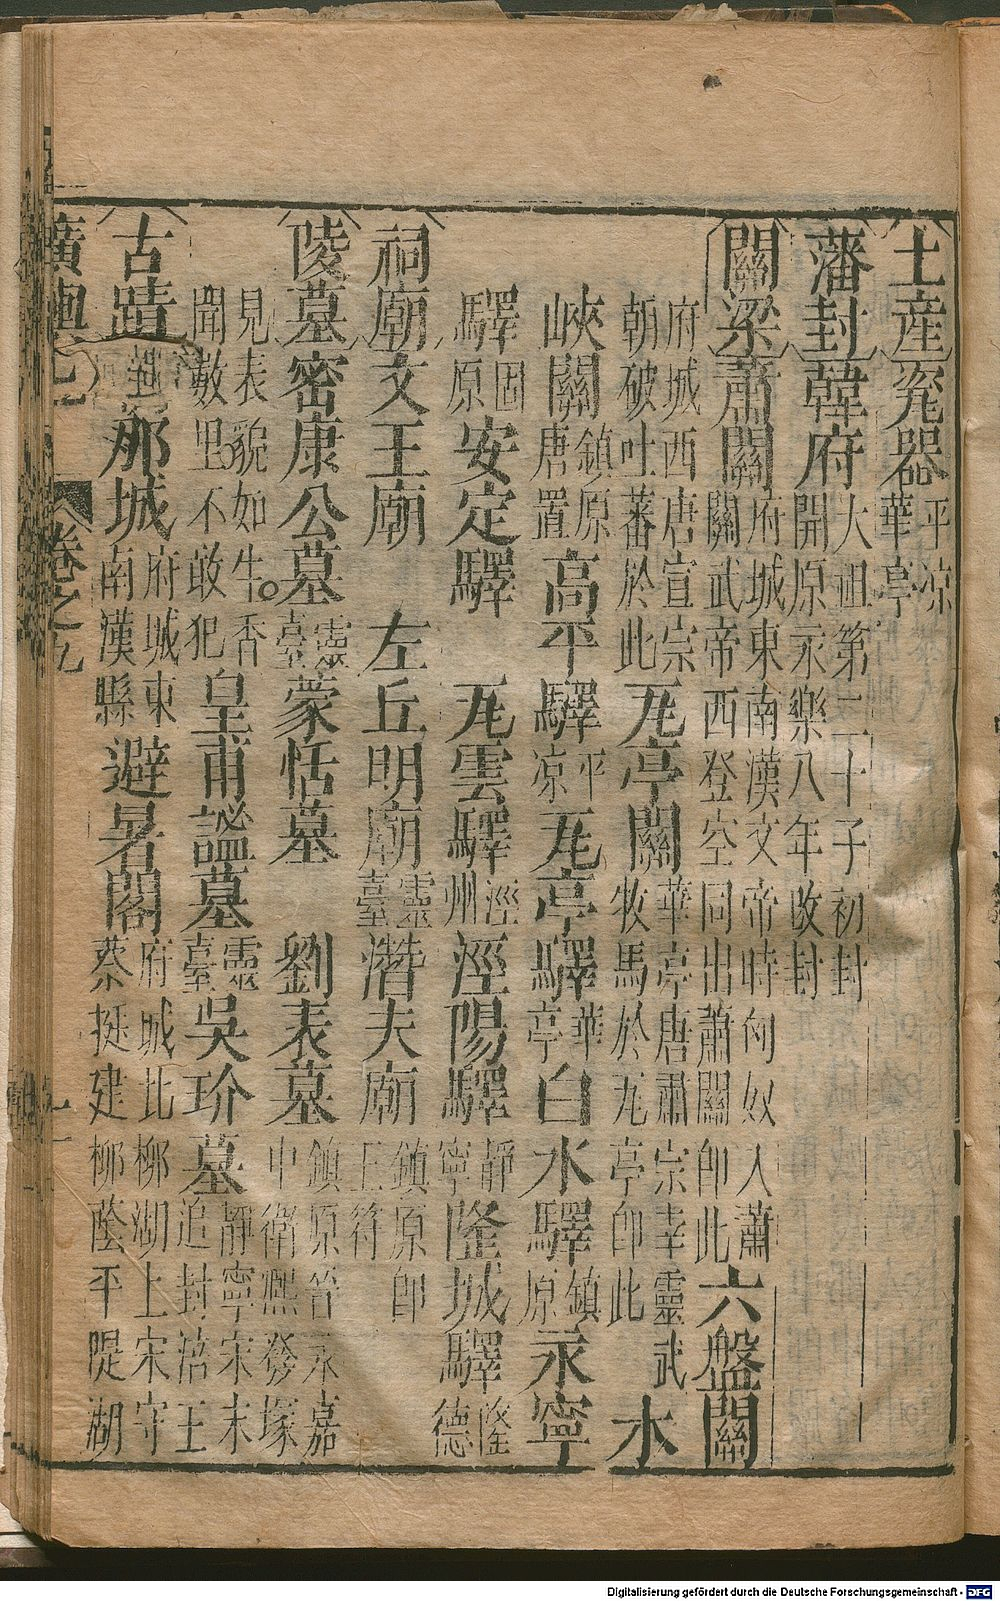 土產 瓷器平涼華亭
藩封 韓府大祖第二十子初封開原永樂八年改封
關梁 蕭關府城東南漢文帝時匈奴入蕭關武帝西登空同出蕭關即此 六盤關
府城西唐宣宗朝破吐蕃於此 瓦亭關華亭唐肅宗幸靈武牧馬於瓦亭即此 木
峽關鎮原唐置 高平驛平凉 瓦亭驛華亭 白水驛鎮原 永寧
驛固原 安定驛 瓦雲驛涇州 涇陽驛靜寧 隆城驛隆德
祠廟 文王廟 左丘明廟靈臺 潛夫廟鎮原即王符
陵墓 密康公墓靈臺 蒙恬墓 劉表墓鎮原晉永嘉中衛熙發塚
見表貌如生香聞數里不敢犯 皇甫謐墓靈臺 吳玠墓靜寧宋末追封涪王
古蹟 那城府城東南漢縣 避暑閣府城北柳湖上宋守蔡挺建柳蔭平隄湖
廣輿 卷之九
Digitalisierung gefördert durch die Deutsche Forschungsgemeinschaft - DFG